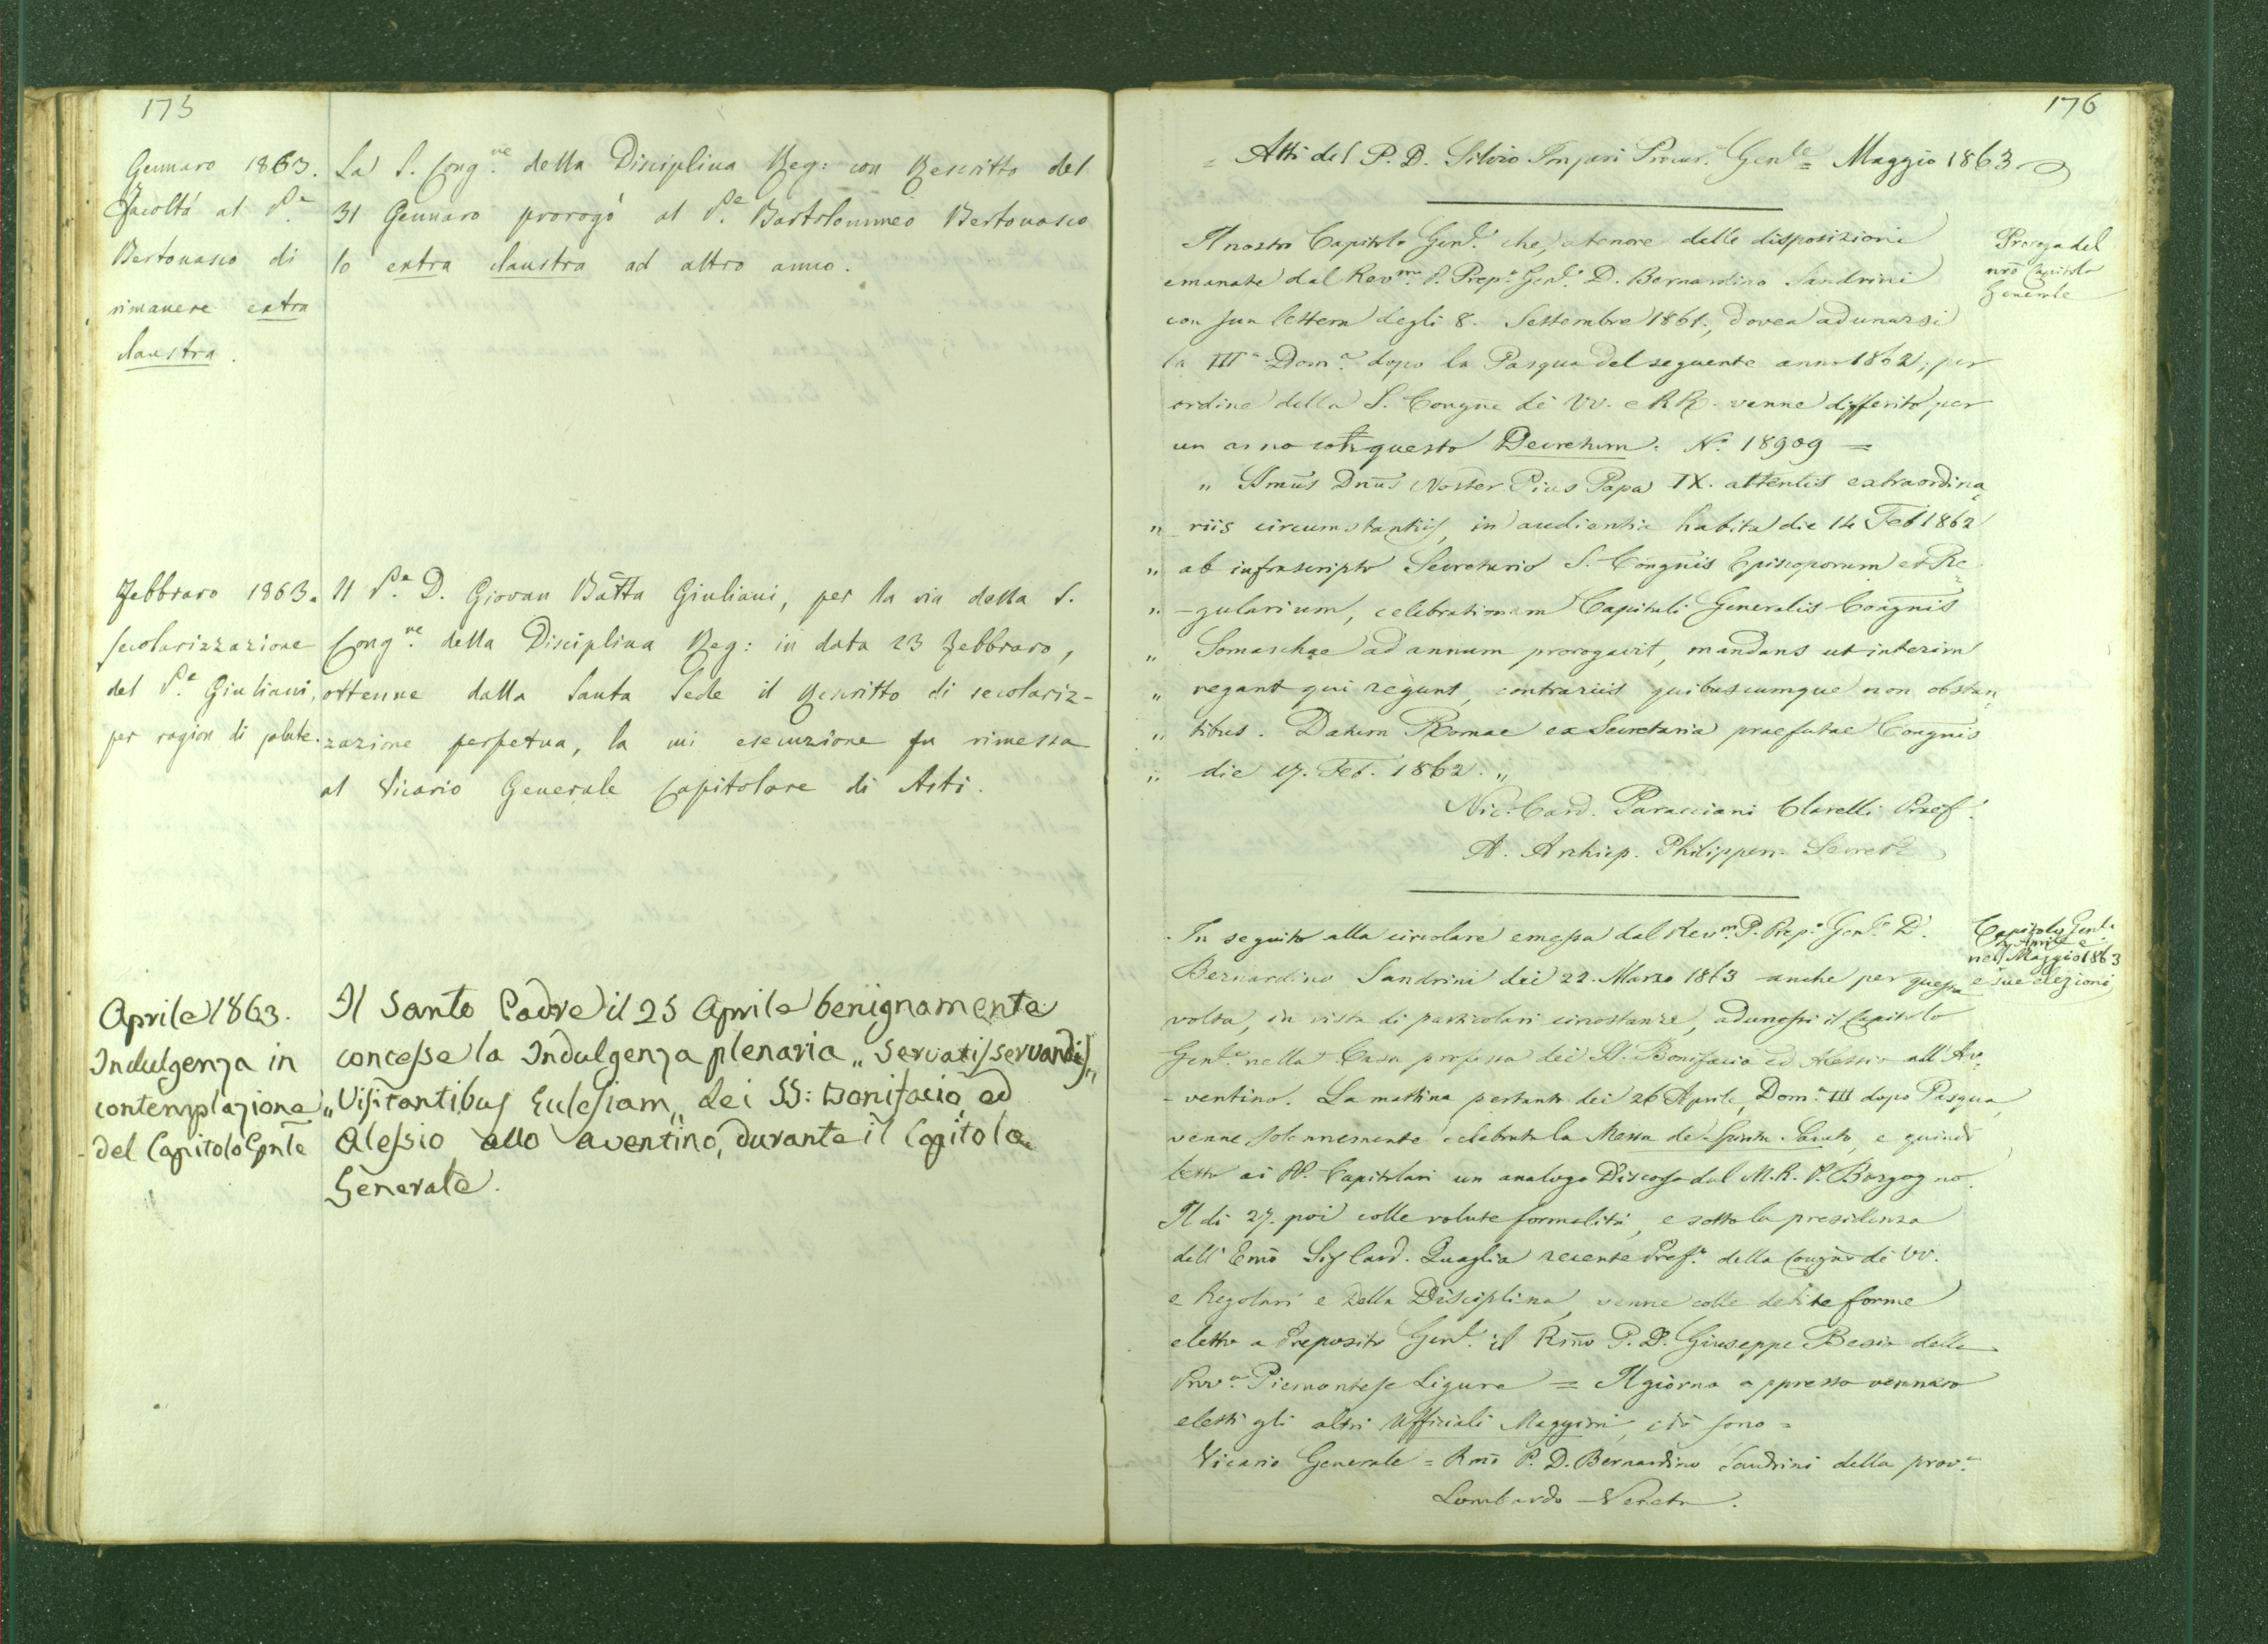 175
Gennaro 1863.
Facoltà al P.e
Bertonasco di
rimanere extra
claustra.
La S. Cong.ne della Disciplina Reg: con Rescritto del
31 Gennaro prorogò al P.e Bartolommeo Bertonasco
lo extra claustra ad altro anno.
Febbraro 1863.
secolarizzazione
del P.e Giuliani,
per ragion di salute.
Il P.e D. Giovan Batta Giuliani, per la via della S.
Cong.ne della Disciplina Reg: in data 23 Febbraro,
ottenne dalla Santa Sede il Rescritto di secolariz-
zazione perpetua, la cui esecuzione fu rimessa
al Vicario Generale Capitolare di Asti.
Aprile 1863.
Indulgenza in
contemplazione
del Capitolo Gnle
Il Santo Padre il 25 Aprile benignamente
concesse la Indulgenza plenaria „ servatis servandis „
„ Visitantibus Eclesiam „ dei SS: Bonifacio, ed
Alessio allo Aventino, durante il Capitolo
Generale.
176
= Atti del P. D. Silvio Imperi Procur. Gen.le = Maggio 1863
Il nostro Capitolo Gen.le che, a tenore delle disposizioni
emanate dal Rev.mo P. Prep.o Gen.le D. Bernardino Sandrini
con sua lettera degli 8. Settembre 1861., dovea adunarsi
la III.a Dom.a dopo la Pasqua del seguente anno 1862, per
ordine della S. Congne de VV. e RR. venne differito per
un anno con questo Decretum. N.o 18909 =
„ SSmus Dnus Noster Pius Papa IX. attentis extraordina
„ riis circumstantiis, in audientia habita die 14 Feb 1862
„ ab infrascripto Secretario S. Congnis Episcoporum et Re
„ -gularium, celebrationem Capituli Generalis Congnis
„ Somaschae ad annum prorogavit, mandans ut interim
„ regant qui regunt, contrariis quibuscumque non obstan
„ tibus. Datum Romae ex Secretaria praefatae Congnis
„ die 17. Feb. 1862. „
Nic. Card. Paracciani Clarelli Praef.
A. Archiep. Philippen. Secret.
Proroga del
nro Capitolo
Generale
In seguito alla circolare emessa dal Rev.mo P. Prep.o Gen.le D.
Bernardino Sandrini dei 22. Marzo 1863 anche per questa
volta, in vista di particolari circostanze, adunossi il Capitolo
Gen.le nella Casa professa dei SS. Bonifacio ed Alessio all'Av-
-ventino. La mattina pertanto dei 26 Aprile, Dom.a III dopo Pasqua,
venne solennemente celebrata la Messa de Spiritu Sancto, e quindi
letto ai PP. Capitolari un analogo Discorso dal M. R. P. Borgogno.
Il dì 27. poi colle volute formalità, e sotto la presidenza
dell'Emo Sig Card. Quaglia recente Pref.o della Congne de VV.
e Regolari e della Disciplina, venne colle debite forme
eletto a Preposito Gen.le il Rmo P. D. Giuseppe Besio della
Prov.a Piemontese Ligure = Il giorno appresso vennero
eletti gli altri Ufficiali Maggiori, ciò sono =
Vicario Generale = Rmo P. D. Bernardino Sandrini della prov.a
Lombardo-Veneta.
Capitolo Gen.le
in Aprile e
nel Maggio 1863
e sue elezioni